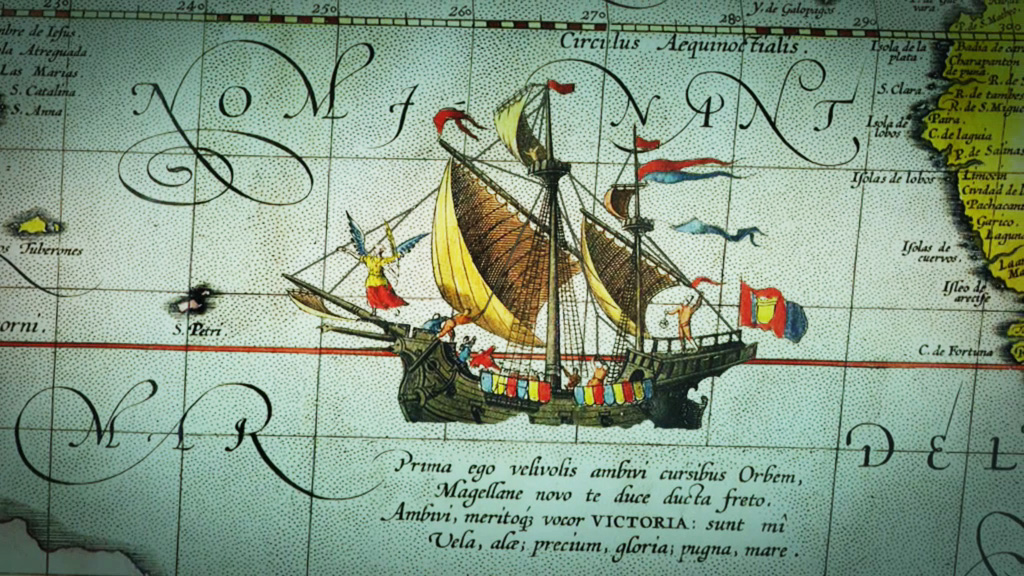 230 240 250 260 270 280 290 300
Y. de Galopagos
Circulus Aequinoctialis.
nbre de Iesus.
la Atreguada
Las Marias.
S. Catalina
S. Anna
NOMINANT
Isola de la
plata.
S. Clara.
Isola de
lobos
Isolas de lobos
Baia de car
Charapanton
de puna.
R. de
R. de tambes
R. de S. Migue
Paira.
C. de laguia
P. de Salinas
Limocin
Cividad de l
Pachacam
Garico.
Laguna
Isolas de
cuervos.
Isleo de
arecife
C. de Fortuna
os Tuberones
S. Petri.
orni.
MAR DEL
Prima ego velivolis ambivi cursibus Orbem,
Magellane novo te duce ducta freto.
Ambivi, meritoqȝ vocor VICTORIA: sunt mî
Vela, alæ; precium, gloria; pugna, mare.